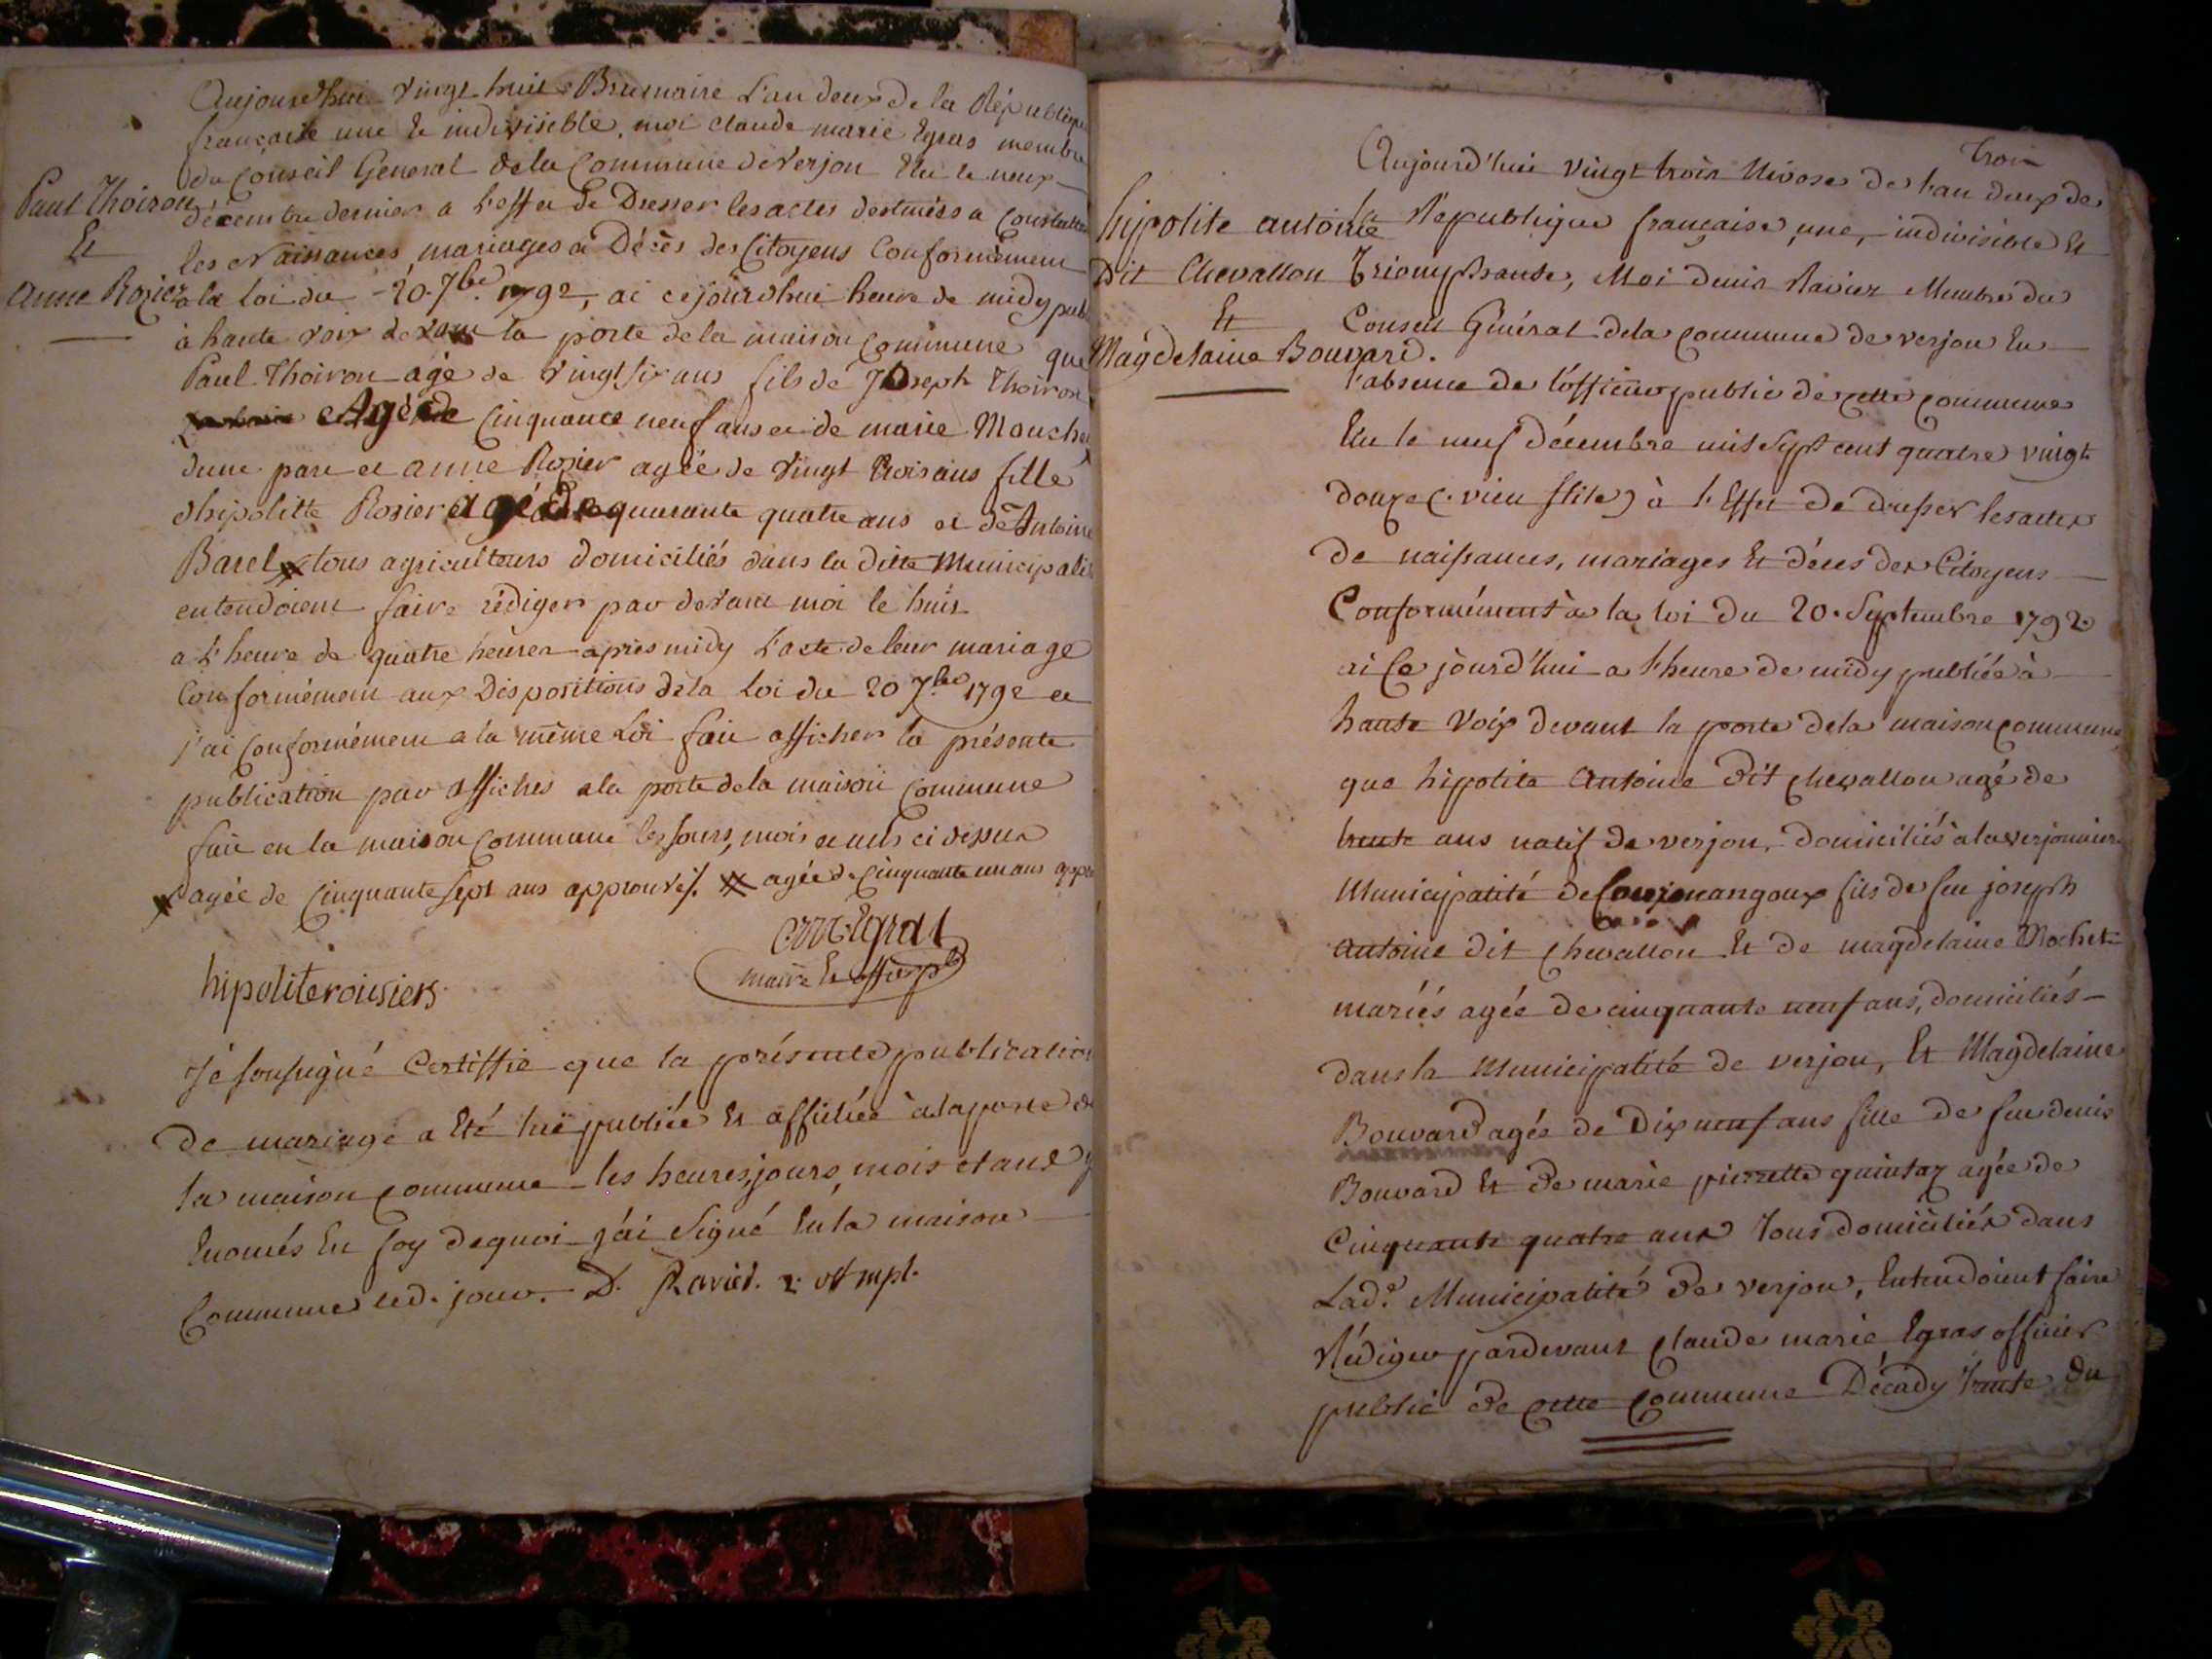 Aujourd'hui vingt huit Brumaire L'an deux de la Républiqu
française une & indivisible, moi claude marie Egras membre
du Conseil General de la Commune de Verjon Elu le neuf
Paul Thoiron
décembre dernier a L'effet de Dresser les actes destinéss a Constatter
Et
les Naissances, mariages et Décès des Citoyens Conformément
Anne Rozier
a la Loi du 20. 7bre 1792, ai cejourdhui heure de midy pub
à haute voix devant la porte de la maison Commune que
Paul Thoiron agé de vingt six ans fils de Joseph Thoiron
Agé de Cinquante neuf ans et de marie Mouche
dune part et anne Rozier agée de vingt trois ans fille
dhipolitte Rosier agé de quarante quatre ans et de Antoine
Barel tous agriculteurs domiciliés dans la ditte Municipalité
entendoient faire rédiger par devant moi le huit
a L'heure de quatre heures apres midy L'acte de leur mariage
Conformément aux Dispositions de la Loi du 20 7bre 1792 et
j'ai Conformément a la même Loi fait afficher la présente
publication par affiches a la porte de la maison Commune
fait en la maison Commune les jours, mois et ans ci dessus
agée de Cinquante sept ans approuvé/. agée de Cinquante un ans appr
CM Egras
maire & officier pb
hipolite roisiers
Je soussigné Certiffie que la présente publication
de mariage a Eté lüe publiée Et affichée a la porte de
la maison commune les heures, jours, mois et ans y
Enoncés En foy de quoi j'ai Signé En la maison
Commune led. jour. D. Ravier. off mpl.
trois
Aujourd'hui vingt trois Nivose de l'an deux de
hipolite antoine
la République française, une, indivisible Et
Dit Chevallon
Triomphante, Moi denis Ravier Membre du
Et
Conseil Général de la commune de verjon En
Magdelaine Bouvard.
l'absence de l'officier public de cette commune
Elu le neuf décembre mil Sept cent quatre vingt
douze (vieu stile) à l'Effet de dresser les actes
de naissances, mariages Et décès des Citoyens
Conformément à la loi du 20. Septembre 1792
ai Ce jourd'hui a l'heure de midy publiée à
haute voix devant la porte de la maison commune,
que hipolite Antoine dit chevallon agé de
trente ans natif de verjon, domiciliés a la verjonniere
Municipalité de Courmangoux fils de feu joseph
Antoine dit chevallon Et de magdelaine Rochet
mariés agée de cinquante neuf ans, domiciliés
dans la Municipalité de verjon, Et Magdelaine
Bouvard agée de Dix neuf ans fille de feu denis
Bouvard Et de marie pierrette quintaz agée de
Cinquante quatre ans tous domiciliés dans
Lad.e Municipalité de verjon, Entendoient faire
Rédiger pardevant claude marie Egras officier
public de cette commune Décady trente du